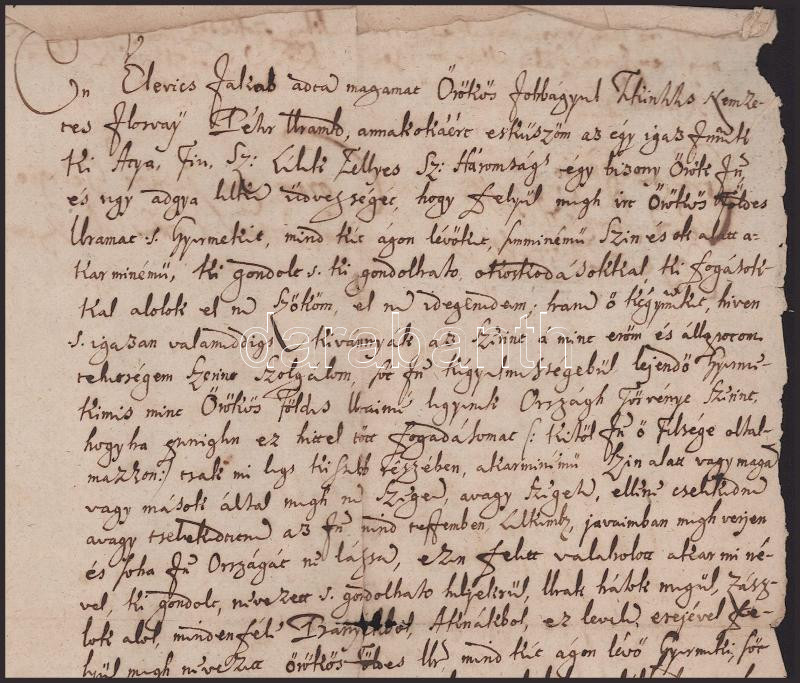 Én Elevics Jakab adta magamat Örökös Jobbágyul Tekintetes Nemze-
tes Ilosvay Péter Uramk, annakokáért esküszöm az egy igaz Istenre
ki Atya, Fiu, Sz: Lélek Tellyes Sz: Háromságh egy bizony Örök Jn
és ugy adgya lelkem üdvességét, hogy felyül megh irt Örökös Földes
Uramat s. Gyermekit, mind két ágon lévöket, semminémü Szin és ok alatt a-
karminémü, ki gondolt s. ki gondolhato okoskodásokkal ki fogások-
kal alolok el ne Szököm, el ne idegenedem; hanem ö kegyelmeket, hiven
s. igazan valameddigh kivannyák az Szerint a mint eröm és állapotom
tehetségem Szerint Szolgálom, söt Jn kegyelmességebül lejendö Gyerme-
kimis mint Örökös Földes Uraimé legyenek Országh Törvénye Szerint,
hogyha penighlen ez hittel tött fogadásomat /: kitöl Jn ö Felsége oltal-
mazzon:/ csak mi legh kissebb részében, akarminémü Szin alatt vagy magam
vagy mások által megh ne Szeged, avagy Szegetném, ellene cselekedném
avagy cselekedtetném az Jn mind testemben, Lelkemben, javaimban megh verjen
és soha Jn Országát ne lássam, ezen felett valaholott akar mi né-
vel, ki gondolt, nevezett s. gondolhato helyekrül, Urak hátok megül, Zász-
lok alol, mindenféle Bányákbol, Aknákbol, ez levelem erejével fe-
lyül megh nevezett örökös Földes Ur, mind két ágon lévö Gyermeki, söt
darabanth